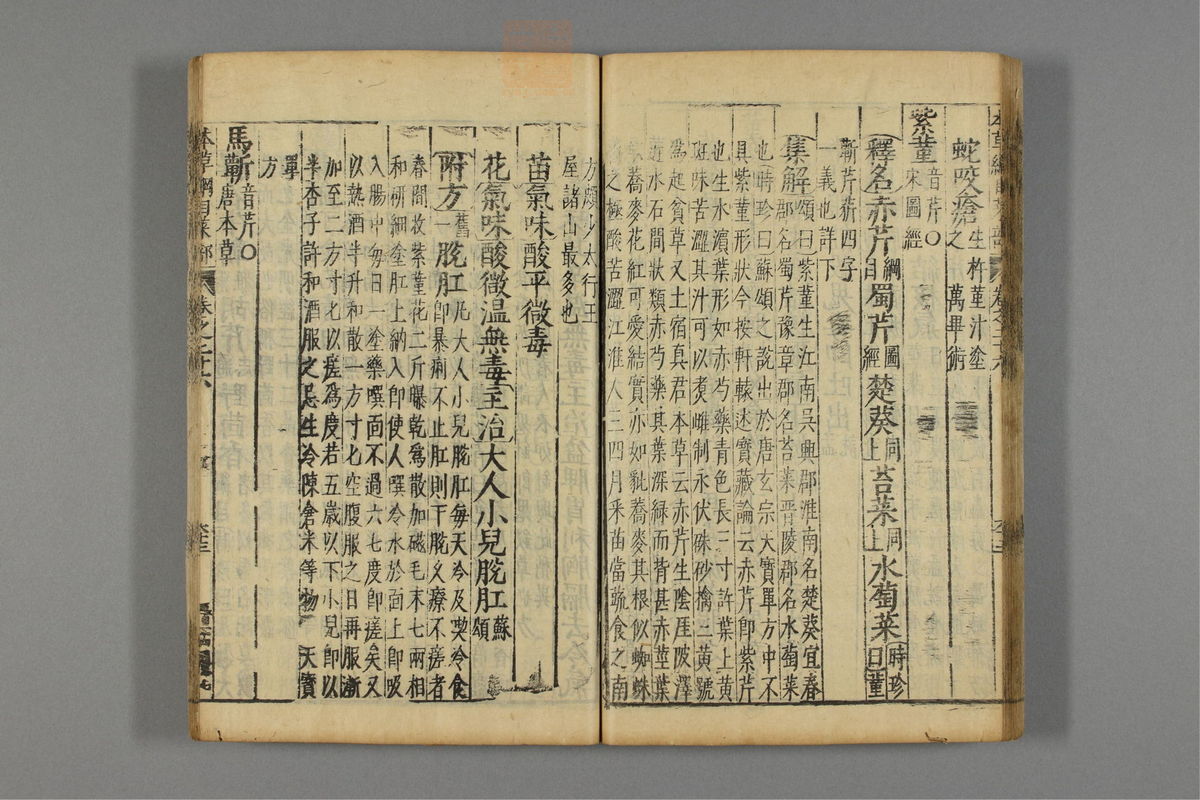 本草綱目菜部 卷之二十六
蛇咬瘡生杵菫汁塗之萬畢術
紫菫音芹〇宋圖經
釋名赤芹綱目蜀芹圖經楚葵同上苔菜同上水蔔菜時珍曰菫
蘄芹斳四字
一義也詳下
集解頌曰紫菫生江南吳興郡淮南名楚葵宜春
郡名蜀芹豫章郡名苔菜晉陵郡名水蔔菜
也時珍曰蘇頌之說出於唐玄宗天寶單方中不
具紫菫形狀今按軒轅述寶藏論云赤芹即紫芹
也生水濱葉形如赤芍藥青色長三寸許葉上黃
斑味苦澀其汁可以煮雌制汞伏硃砂擒三黃號
為起貧草又土宿真君本草云赤芹生陰厓陂澤
近水石間狀類赤芍藥其葉深綠而背甚赤莖葉
蕎麥花紅可愛結實亦如豼蕎麥其根似蜘蛛
之極酸苦澀江淮人三四月采苗當蔬食之南
方頗少太行王
屋諸山最多也
苗氣味酸平微毒
花氣味酸微溫無毒主治大人小兒脫肛蘇頌
附方舊一脫肛凡大人小兒脫肛每天冷及喫冷食
即暴痢不止肛則下脫久療不瘥者
春間收紫菫花二斤曝乾為散加磁毛末七兩相
和研細塗肛上納入即使人噀冷水於面上即吸
入腸中每日一塗藥噀面不過六七度即瘥矣又
以熱酒半升和散一方寸匕空腹服之日再服漸
加至二方寸匕以瘥為度若五歲以下小兒即以
半杏子許和酒服之忌生冷陳倉米等物天寶
單方
馬蘄音芹〇唐本草
本草綱目菜部 卷之二十六